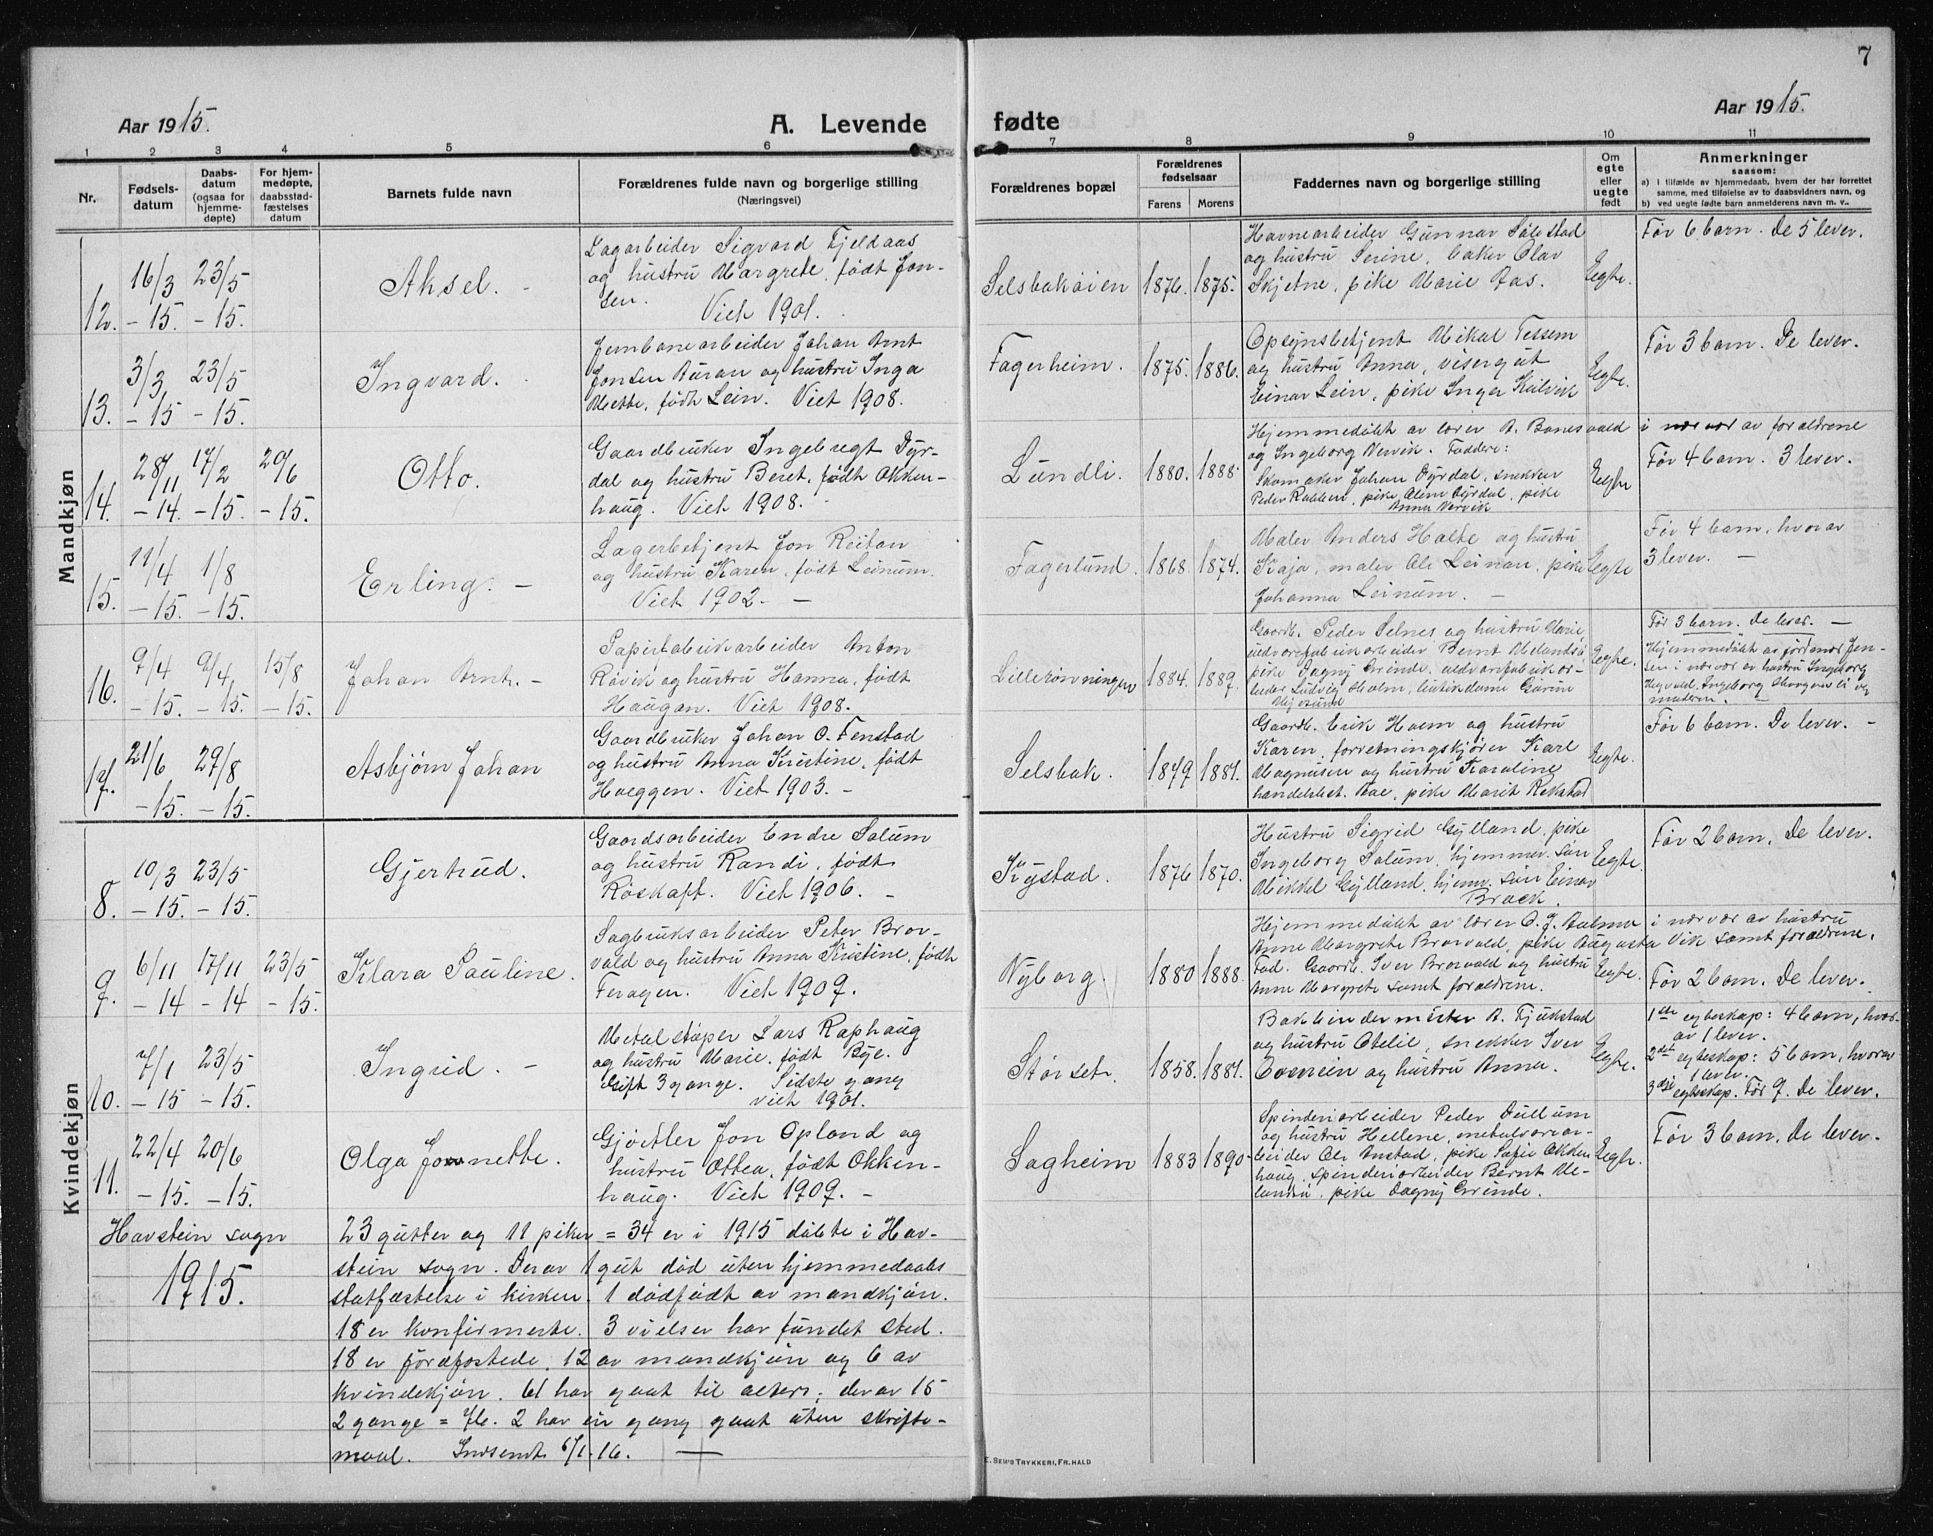 7
Aar 1915.
A. Levende
fødte
Aar 1915.
1 2 3 4 5 6 7 8 9 10 11
Nr.
Fødsels-
datum
Daabs-
datum
(ogsaa for
hjemme-
døpte)
For hjem-
medøpte,
daabsstad-
fæstelses
datum
Barnets fulde navn
Forældrenes fulde navn og borgerlige stilling
(Næringsvei)
Forældrenes bopæl
Forældrenes
fødselsaar
Farens Morens
Faddernes navn og borgerlige stilling
Om
egte
eller
uegte
født
Anmerkninger
saasom:
a) I tilfælde av hjemmedaab, hvem der har forrettet
samme, med tilføielse av to daabsvidners navn, og
b) ved uegte fødte barn anmelderens navn m. v..
Mandkjøn
12.
16/3 23/5
- 15. - 15.
Aksel. -
Lagarbeider Sigvard Fjeldaas
og hustru Margrete, født Jon-
sen. Viet 1901.
Selsbakøien
1876. 1875.
Havnearbeider Gunnar Solstad
og hustru Serine, baker Olav
Skjetne, pike Marie Aas.
Egte.
Før 6 barn. De 5 lever.
13.
3/3 23/5
- 15 - 15.
Ingvard.
Jernbanearbeider Johan Arnt
Jonsen Auran og hustru Inga
Mette, født Lein. Viet 1908.
Fagerheim.
1875. 1886.
Opsynsbetjent Mikal Tessem
og hustru Anna, visergut
Einar Lein, pike Inger Kulvik
Egte.
Før 3 barn. De lever.
14.
28/11 17/2 20/6
- 14. - 15. - 15.
Otto.
Gaardbruker Ingebrigt Dyr-
dal og hustru Beret, født Okken-
haug. Viet 1908.
Lundli.
1880. 1888.
Hjemmedøbt av lærer A. Bones vald i nærvær av forældrene
og Ingeborg Vervik. Faddere:
Skomaker Johan Dyrdal, snekker
Peder Rabben, pike Oline Dyrdal, pike
Anna Vervik
Egte
Før 4 barn. 3 lever.
15.
11/4 1/8
- 15. - 15.
Erling. -
Lagerbetjent Jon Reitan
og hustru Karen, født Leinum.
Viet 1902. -
Fagerlund.
1868. 1874.
Maler Anders Halte og hustru
Kaja, maler Ole Leinan, pike
Johanna Leinum. -
Egte
Før 4 barn, hvorav
3 lever. -
16.
9/4 9/4 15/8
- 15. - 15. - 15.
Johan Arnt. -
Papirfabrikarbeider Anton
Røvik og hustru Hanna, født
Haugan. Viet 1908.
Lillerønningen
1884. 1889.
Gaardb. Peder Selnes og hustru Marie,
uldvarefabrikarbeider Bernt Melandsø
pike Dagny Grinde, uldvarefabrikar-
beider Ludvig Holm, butikdame Gurine
Egte.
Før 3 barn. De lever. -
Hjemmedøbt av jordmor Jen-
sen i nærvær av hustru Ingeborg
17.
21/6 29/8
- 15 - 15.
Asbjørn Johan
Gaardbruker Johan O. Fenstad
og hustru Anna Kirstine, født
Hoeggen. Viet 1903. -
Selsbak.
1879 1881.
Gaardb. Erik Hoem og hustru
Karen, forretningskjører Karl
Magnusen og hustru Karoline
handelsbet. Aae, pike Marit Rekstad
Egte.
Før 6 barn. De lever. -
Kvindekjøn
8.
10/3 23/5
- 15. - 15.
Gjertrud.
Gaardsarbeider Endre Solum
og hustru Randi, født
Røskaft. Viet 1906. -
Kystad.
1876 1870.
Hustru Sigrid Gylland, pike
Ingeborg Solum, hjemmev. søn
Mikkel Gylland, hjemv. søn Einar
Braek.
Egte.
Før 2 barn. De lever.
9.
6/11 17/11 23/5
- 14 - 14 - 15.
Klara Pauline.
Sagbruksarbeider Peter Brov-
vald og hustru Anna Kristine, født
Feragen. Viet 1909.
Nyborg.
1880 1888.
Hjemmedøbt av lærer O. J. Aalmo i nærvær av hustru
Anne Margrete Brovald, pike Augusta Vik samt forældrene.
Fad. Gaardb. Iver Brovald og hustru
Anne Margrete samt forældrene.
Egte.
Før 2 barn. De lever.
10.
7/1 23/5
- 15 - 15.
Ingrid. -
Metalstøper Lars Raphaug
og hustru Marie, født Bye.
Gift 3 gange. Sidste gang
viet 1901.
Størset.
1858. 1881.
Bokbindermester A. Fjukstad
og hustru Otelie, snekker Iver
og hustru Anna.
Egte.
1ste egteskap: 4 barn, hvor-
av 1 lever.
2det egteskap: 5 barn, hvorav
1 lever.
3dje egteskap. Før 9. De lever.
11.
22/4 20/6
- 15. - 15.
Olga Jonette.
Gjørtler Jon Opland og
hustru Ottea, født Okken-
haug. Viet 1909. -
Sagheim
1883 1890
Spinderiarbeider Peder Dullum
og hustru Hellene, metalvarear-
beider Ole Anstad, pike Sofie Okken
haug, spinderiarbeider Bernt Me-
landsø, pike Dagny Grinde.
Egte.
Før 3 barn. De lever.
Havstein sogn
1915.
23 gutter og 11 piker = 34 er i 1915 døbte i Hav-
stein sogn. Derav 1 gut død uten hjemmedaabs
statfæstelse i kirken. 1 dødfødt av mandkjøn.
18 er konfirmerte. 3 vielser har fundet sted.
18 er jordfæstede, 12 av mandkjøn og 6 av
kvindekjøn. 61 har gaat til alters; derav 15
2 gange = 76. 2 har en gang gaat uten skrifte-
maal. Indsendt 6/1-16. -
E. SEM'S TRYKKERI, FR.HALD